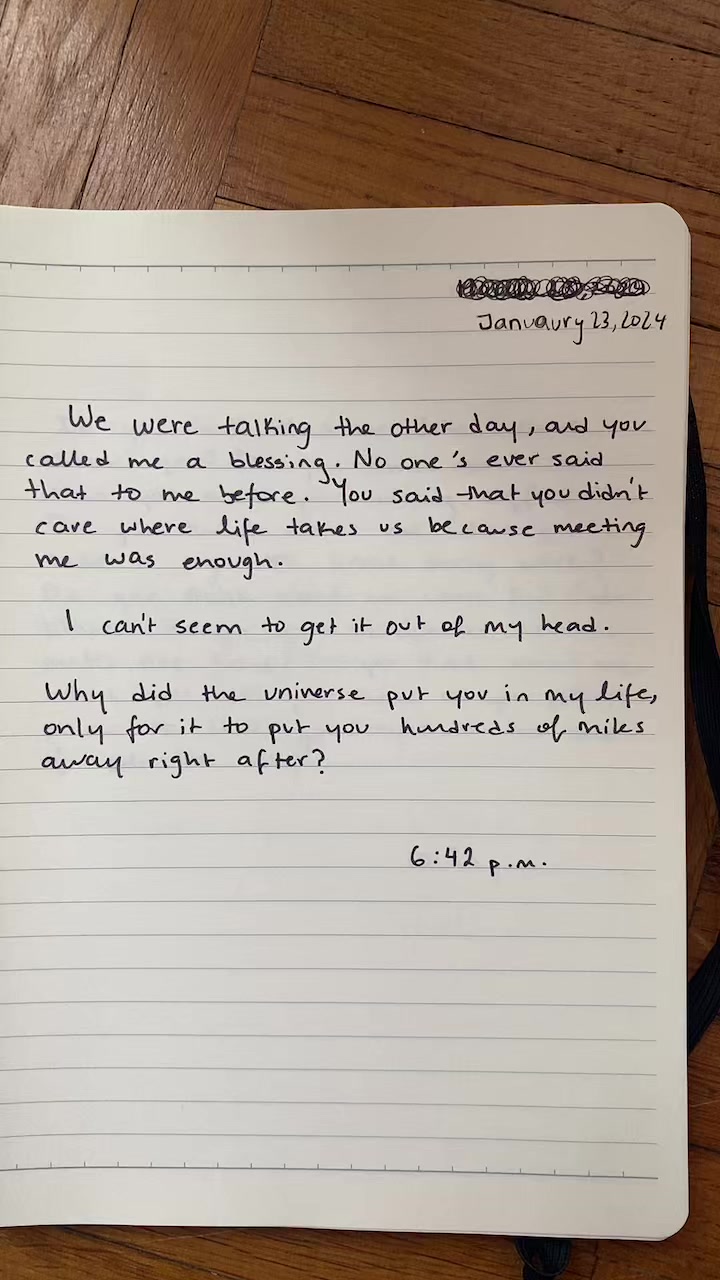 Janvavry 23, 2024
We were talking the other day, and you
called me a blessing. No one's ever said
that to me before. You said that you didn't
care where life takes us because meeting
me was enough.
I can't seem to get it out of my head.
Why did the universe put you in my life,
only for it to put you hundreds of miles
away right after?
6:42 p.m.